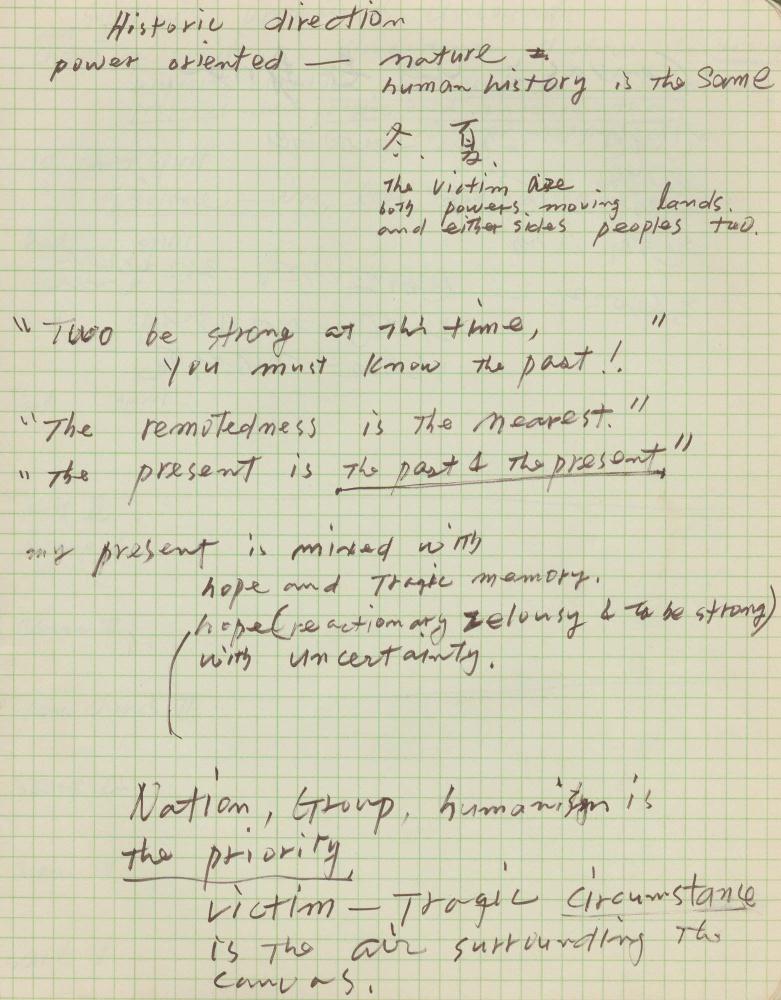 Historic direction
power oriented — nature
human history is the same
冬. 夏.
The victim are
both powers moving lands.
and either sides peoples two.
"Two be strong at this time, "
you must know the past!.
"The remotedness is the nearest."
"The present is the past & the present"
my present is mixed with
hope and Tragic memory.
hope (reactionary zelousy & to be strong)
with uncertainty.
Nation, Group, humanism is
the priority,
victim — Tragic circumstance
is the air surrounding the
canvas.